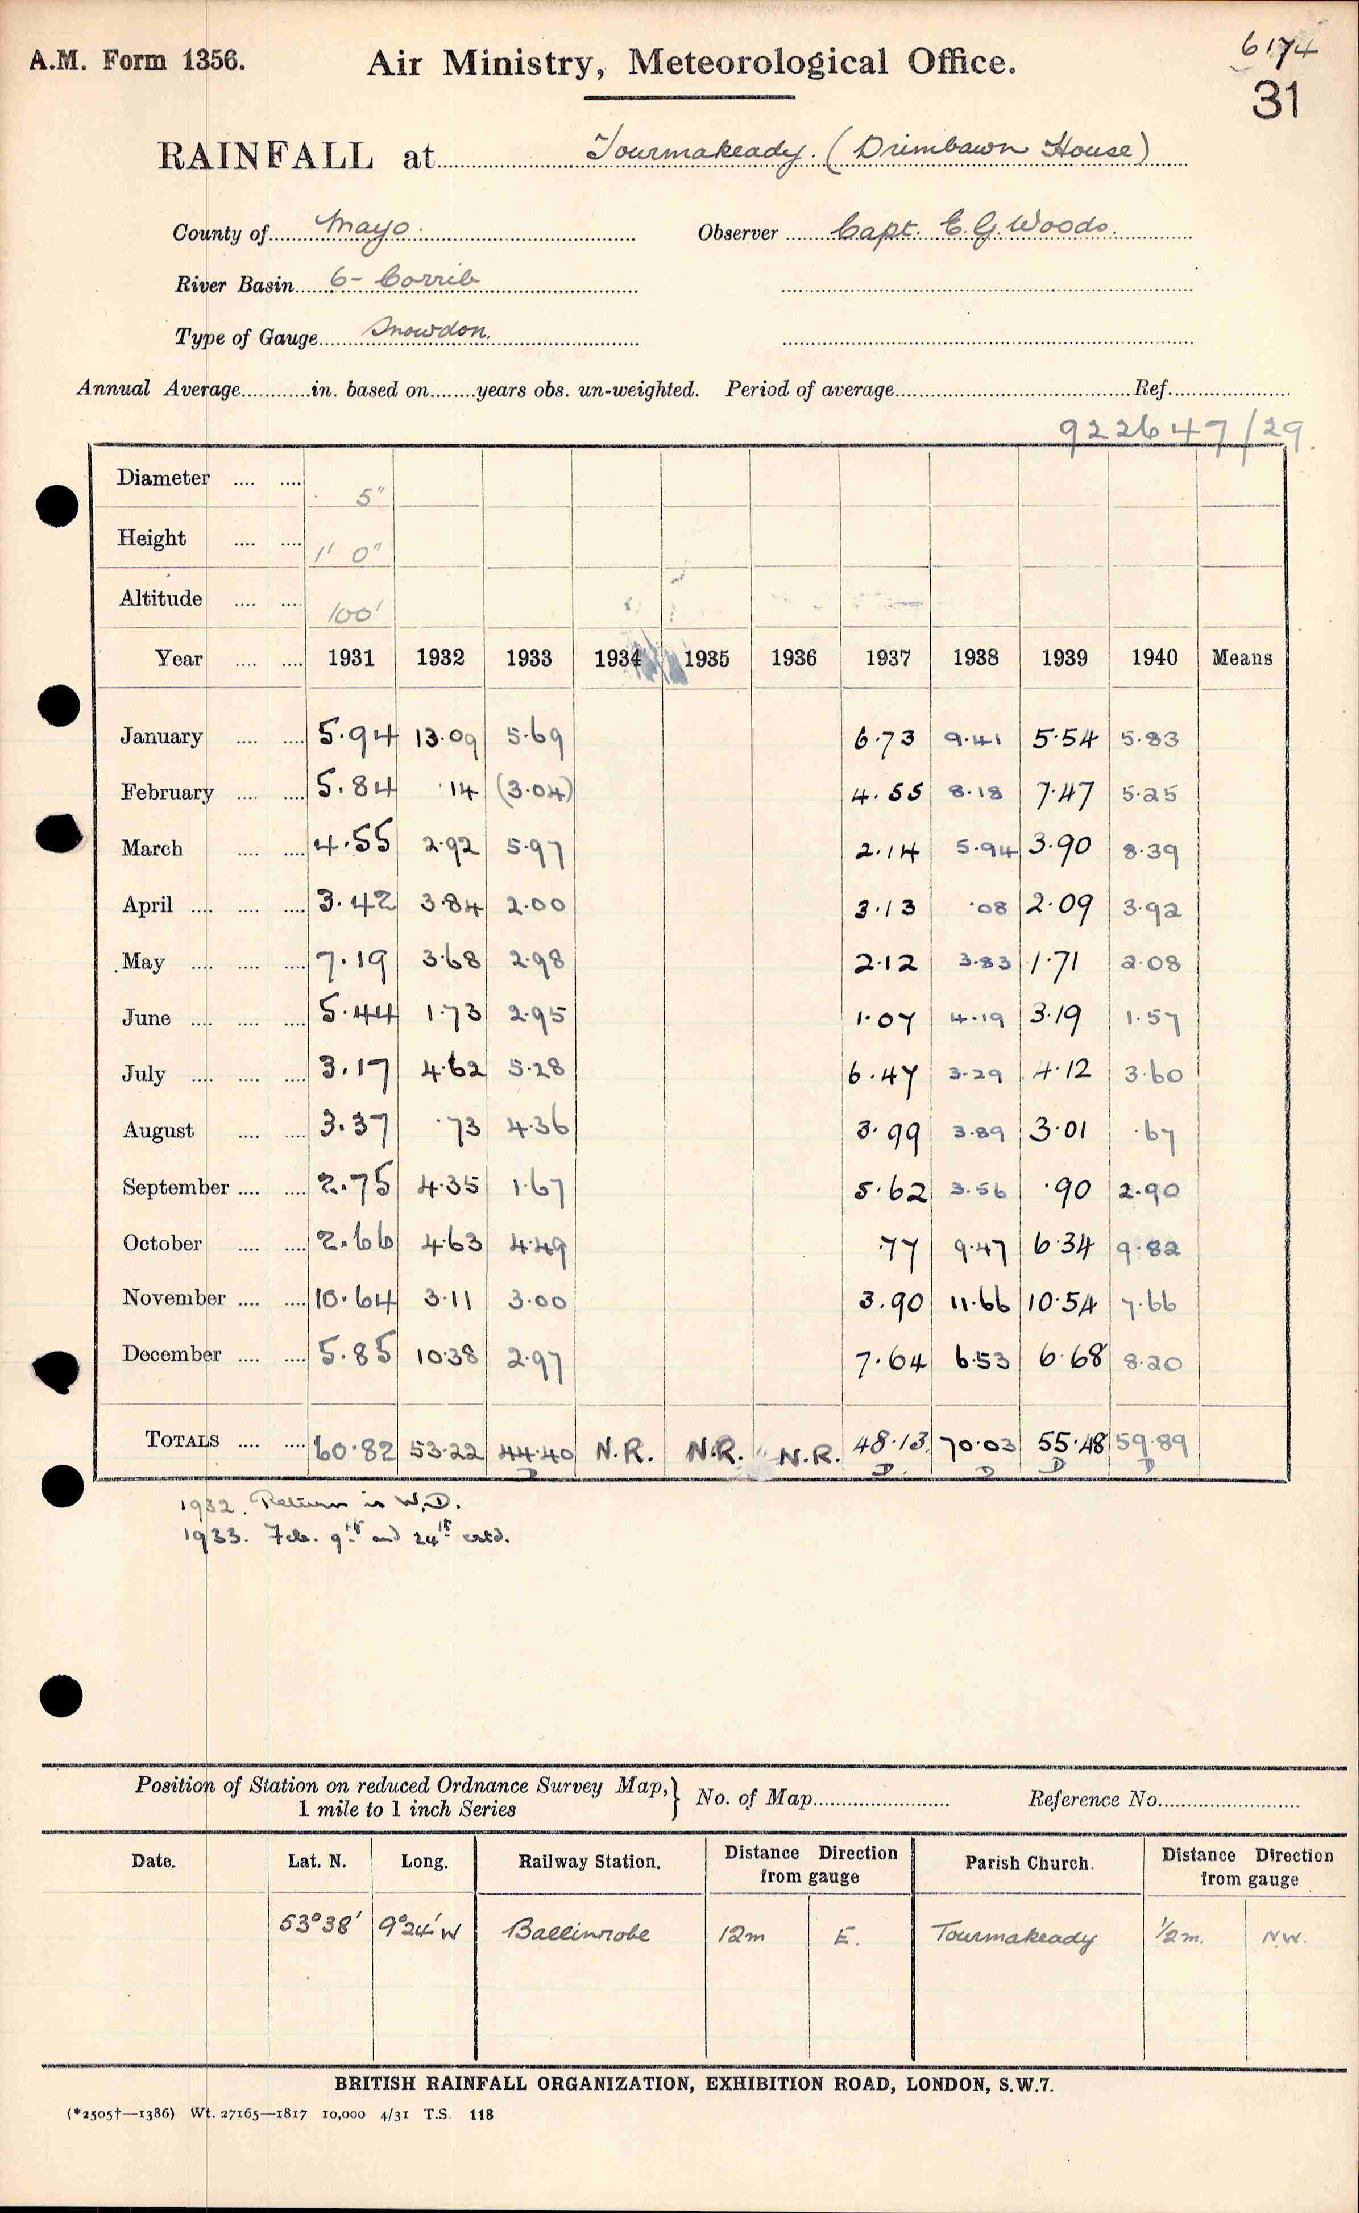 A.M. Form 1356.
Air Ministry, Meteorological Office.
6174
31
RAINFALL at Tourmakeady. (Drimbawn House)
County of Mayo. Observer Capt. E. G. Woods.
River Basin 6- Corrib
Type of Gauge Snowdon.
Annual Average in. based on years obs. un-weighted. Period of average Ref.
922647/29.
Diameter .... .... 5"
Height .... .... 1' 0"
Altitude .... .... 100'
Year .... .... 1931 1932 1933 1934 1935 1936 1937 1938 1939 1940 Means
January .... .... 5.94 13.09 5.69 6.73 9.41 5.54 5.83
February .... .... 5.84 .14 (3.04) 4.55 8.18 7.47 5.25
March .... .... 4.55 2.92 5.97 2.14 5.94 3.90 8.39
April .... .... .... 3.42 3.84 2.00 3.13 .08 2.09 3.92
May .... .... .... 7.19 3.68 2.98 2.12 3.83 1.71 2.08
June .... .... .... 5.44 1.73 2.95 1.07 4.19 3.19 1.57
July .... .... .... 3.17 4.62 5.28 6.47 3.29 4.12 3.60
August .... .... 3.37 .73 4.36 3.99 3.89 3.01 .67
September .... .... 2.75 4.35 1.67 5.62 3.56 .90 2.90
October .... .... 2.66 4.63 4.49 .77 9.47 6.34 9.82
November .... .... 10.64 3.11 3.00 3.90 11.66 10.54 7.66
December .... .... 5.85 10.38 2.97 7.64 6.53 6.68 8.20
TOTALS .... .... 60.82 53.22 44.40 N.R. N.R. N.R. 48.13 70.03 55.48 59.89
D D D D D
1932. Return is W.D.
1933. Feb. 9th and 24th estd.
Position of Station on reduced Ordnance Survey Map, } No. of Map Reference No.
1 mile to 1 inch Series
Date. Lat. N. Long. Railway Station. Distance Direction from gauge Parish Church. Distance Direction from gauge
53°38' 9°24' W Ballinrobe 12m E. Tourmakeady 1/2m. N.W.
BRITISH RAINFALL ORGANIZATION, EXHIBITION ROAD, LONDON, S.W.7.
(*2505†—1386) Wt. 27165—1817 10,000 4/31 T.S. 118